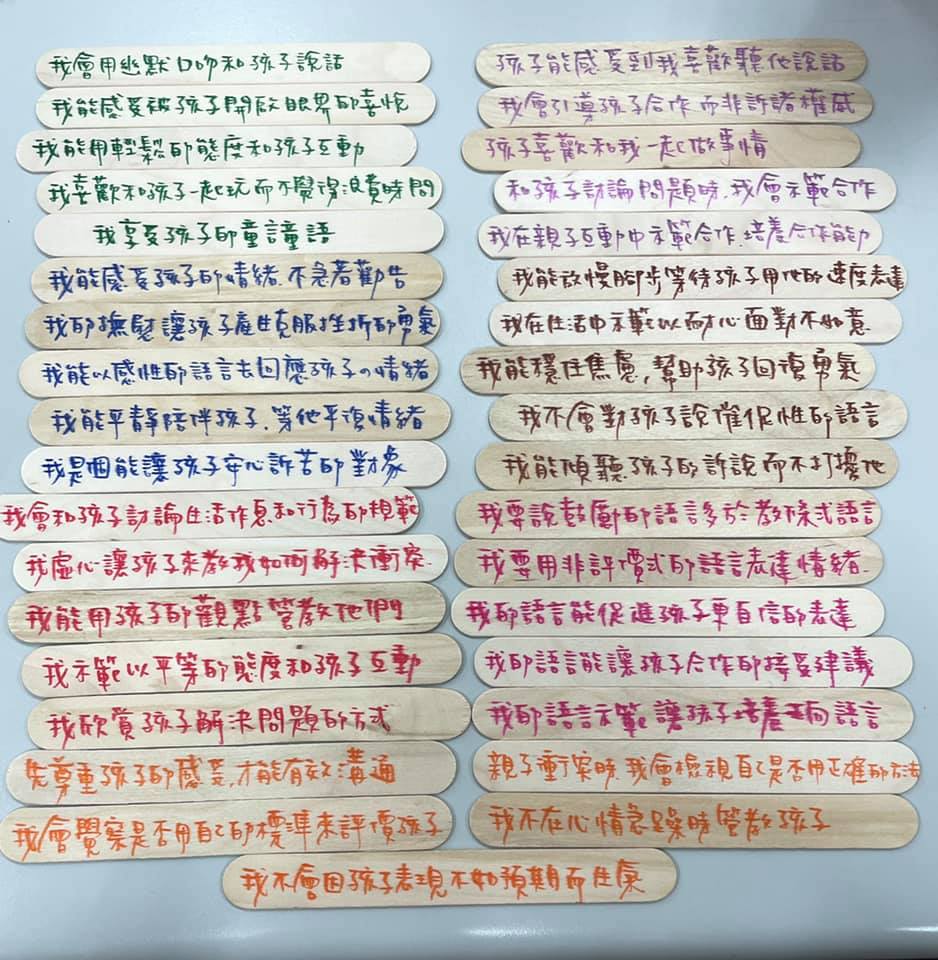 我會用幽默口吻和孩子說話
我能感受被孩子開啟眼界的喜悅
我能用輕鬆的態度和孩子互動
我喜歡和孩子一起玩而不覺得浪費時間
我享受孩子的童言童語
我能感受孩子的情緒.不急著勸告
我的撫慰讓孩子產生克服挫折的勇氣
我能以感性的語言去回應孩子の情緒
我能平靜陪伴孩子.等他平復情緒
我是個能讓孩子安心訴苦的對象
我會和孩子討論生活作息和行為的規範
我虛心讓孩子來教我如何解決衝突.
我能用孩子的觀點管教他們
我示範以平等的態度和孩子互動
我欣賞孩子解決問題的方式
先尊重孩子的感受,才能有效溝通
我會覺察是否用自己的標準來評價孩子
孩子能感受到我喜歡聽他說話
我會引導孩子合作而非訴諸權威
孩子喜歡和我一起做事情
和孩子討論問題時.我會示範合作
我在親子互動中示範合作.培養合作能力
我能放慢腳步等待孩子用他的速度表達
我在生活中示範以耐心面對不如意.
我能穩住焦慮,幫助孩子回復勇氣
我不會對孩子說催促性的語言
我能傾聽孩子的訴說而不打擾他
我要說鼓勵的語言多於教條式語言
我要用非評價式的語言表達情緒.
我的語言能促進孩子更自信的表達
我的語言能讓孩子合作的接受建議
我的語言示範讓孩子培養正向語言
親子衝突時.我會檢視自己是否用正確的方法
我不在心情急躁時管教孩子
我不會因孩子表現不如預期而生氣